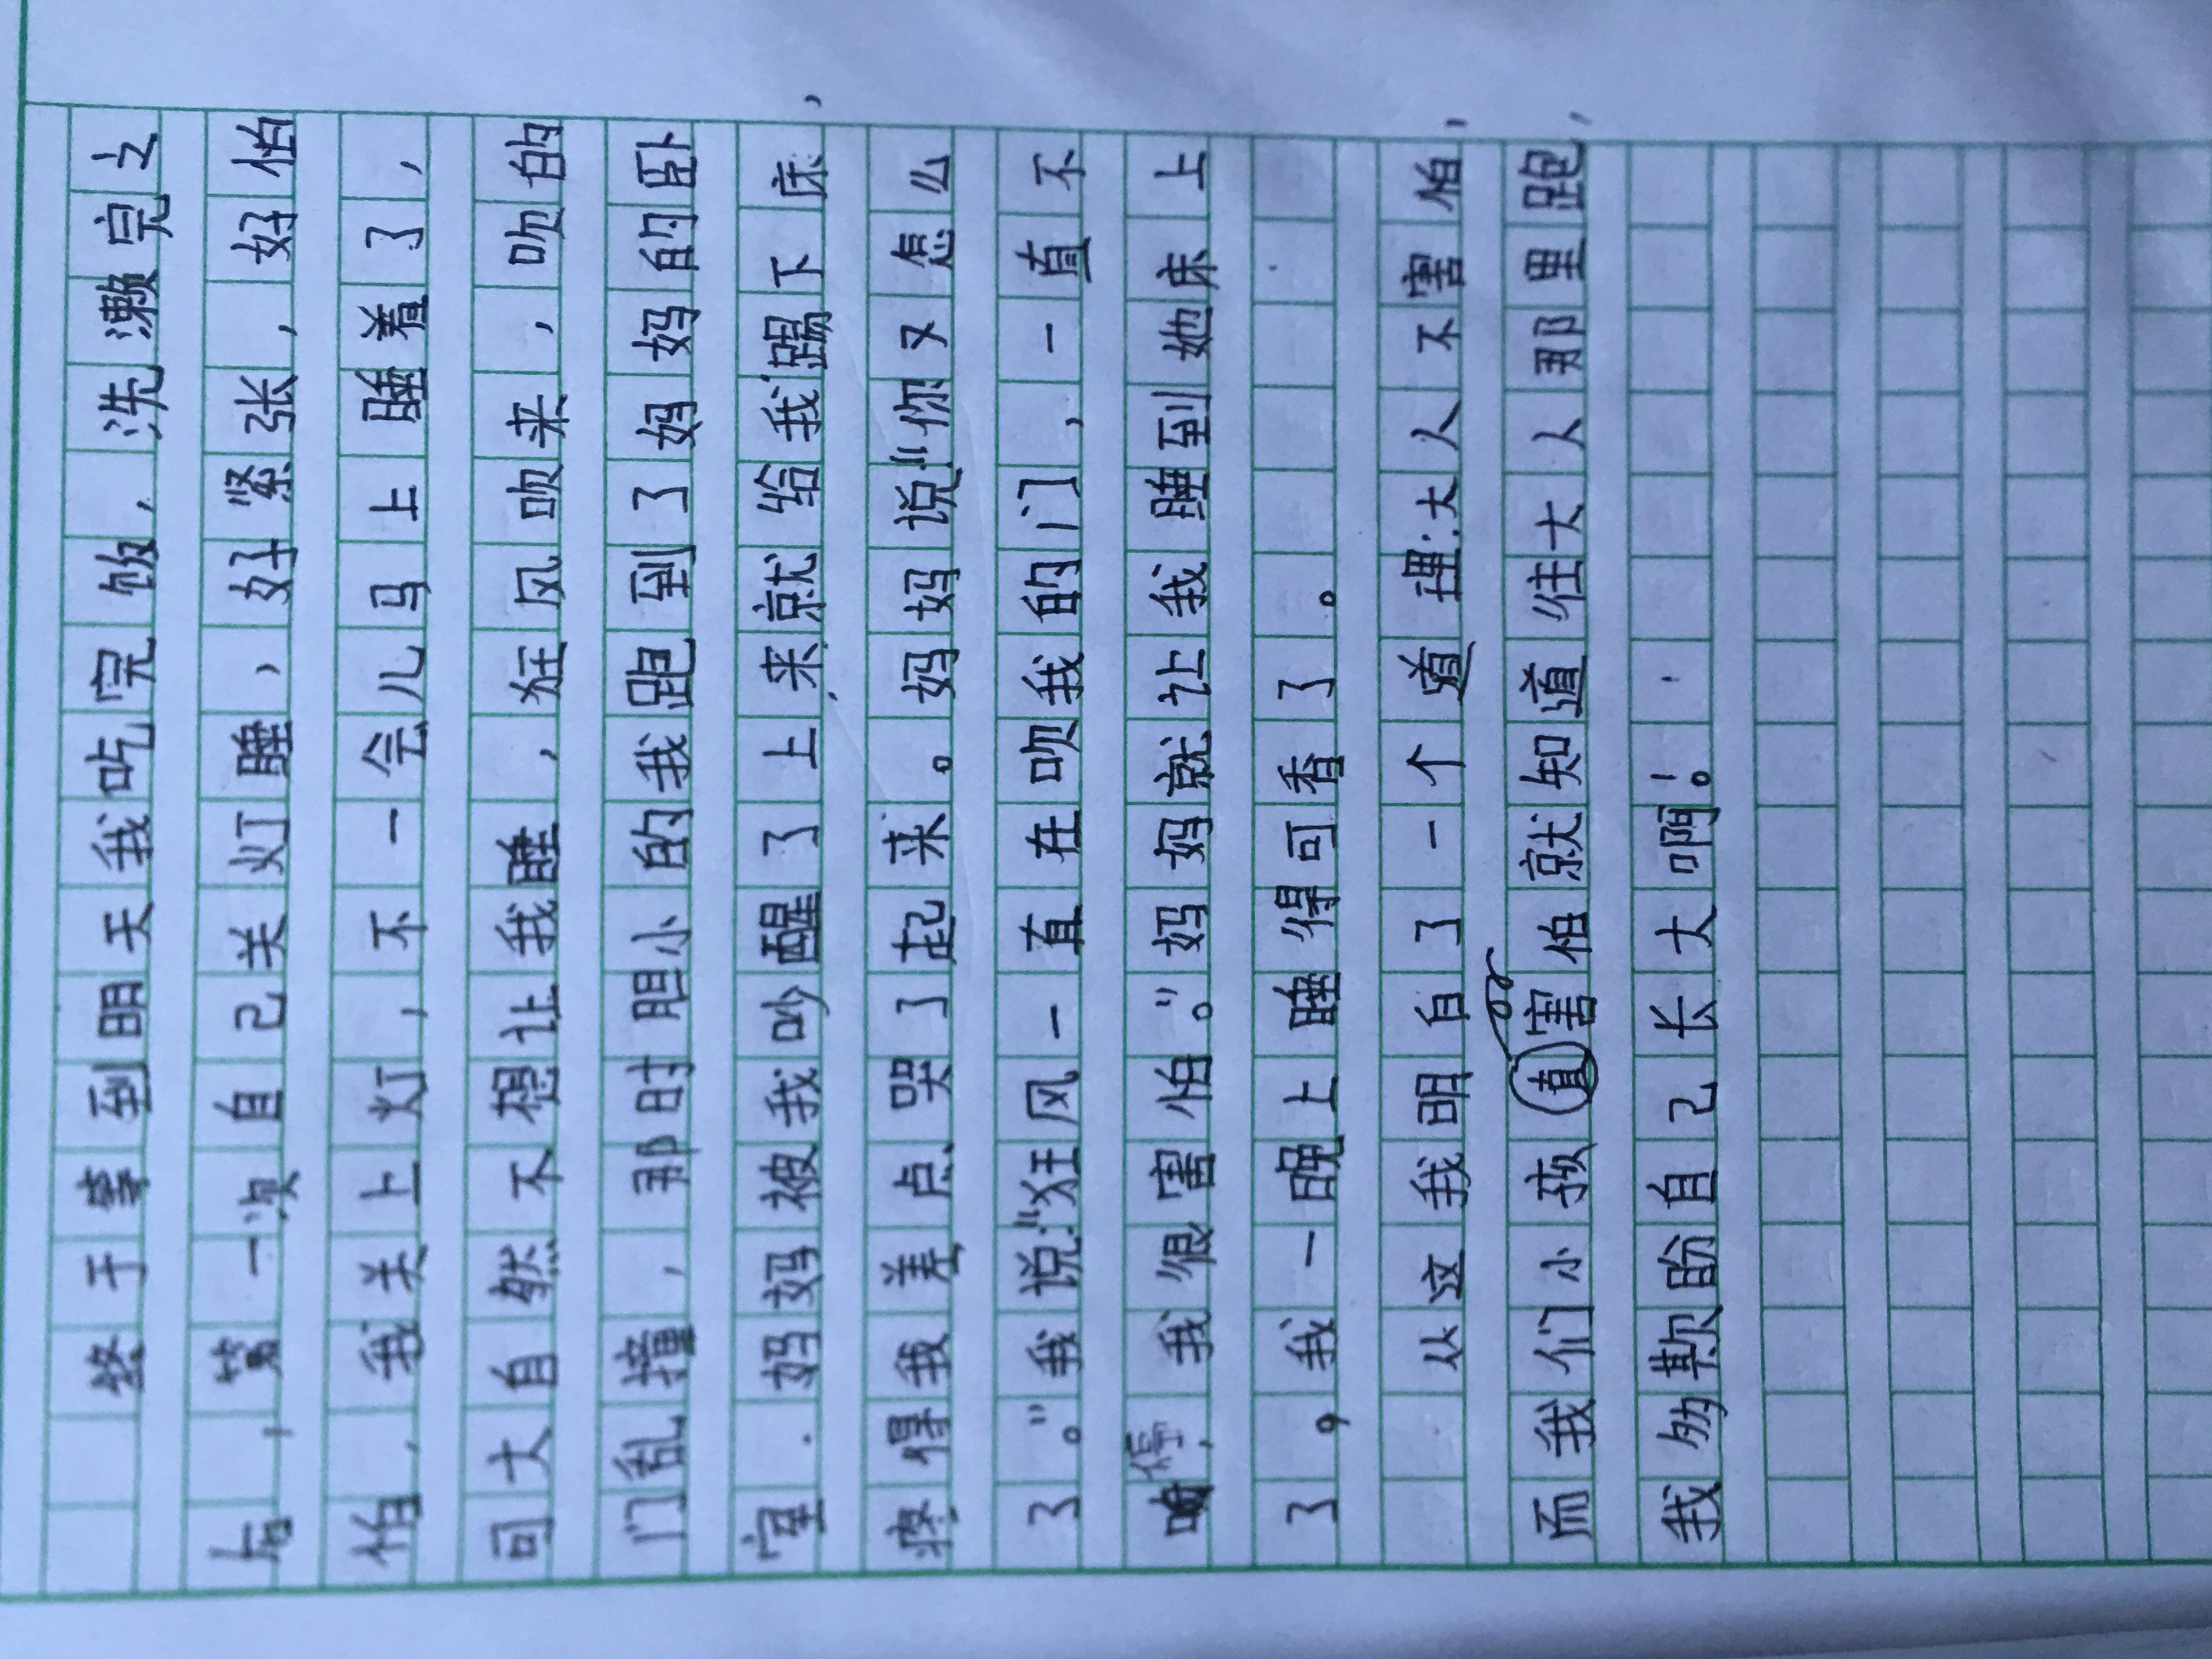 终于等到明天我吃完饭，洗濑完之
后，第一次自己关灯睡，好紧张，好怕
怕，我关上灯，不一会儿马上睡着了，
可大自然不想让我睡，狂风吹来，吹的
门乱撞，那时胆小的我跑到了妈妈的卧
室.妈妈被我吵醒了上来就给我踢下床，
疼得我差点哭了起来。妈妈说:“你又怎么
了。”我说:“狂风一直在吹我的门，一直不
停，我很害怕。”妈妈就让我睡到她床上
了。我一晚上睡得可香了。
从这我明白了一个道理:大人不害怕，
而我们小孩值害怕就知道往大人那里跑，
我多期盼自己长大啊！